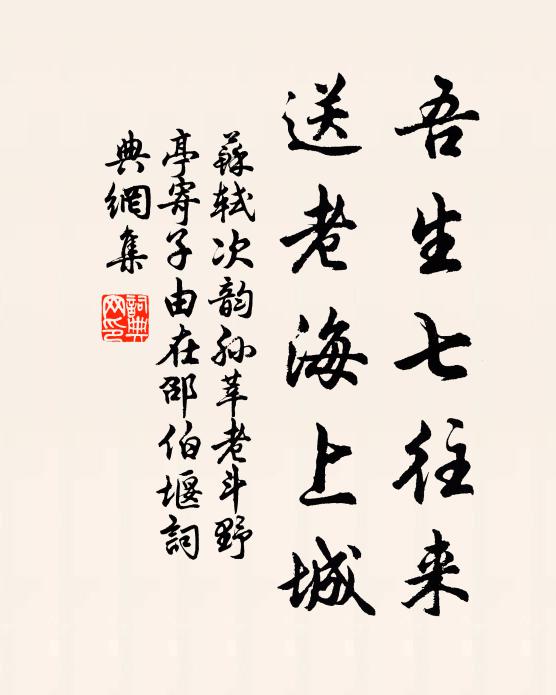 吾生七往来
送老海上城
蘇軾次韵孙莘老斗野
亭寄子由在邵伯堰詞
典網集
詞典网印